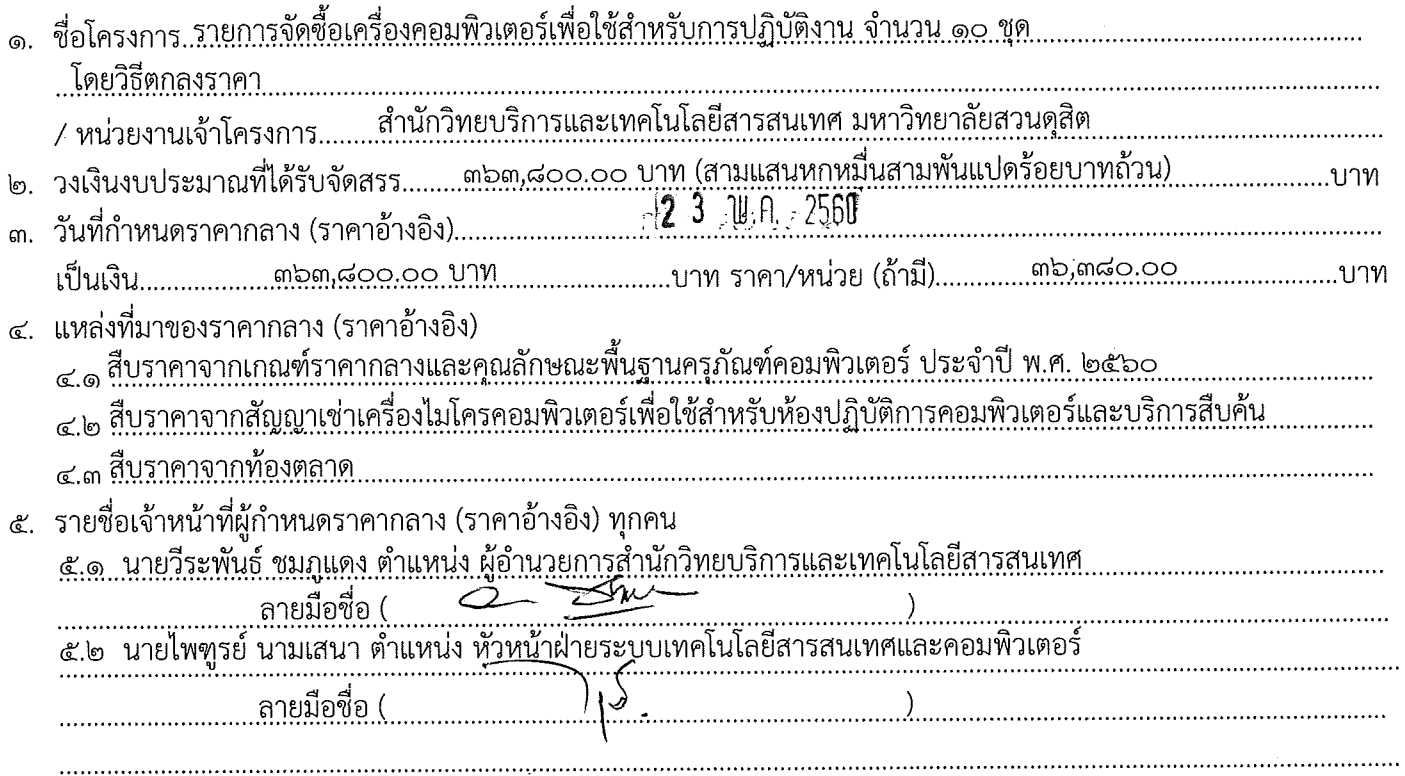 ๑. ชื่อโครงการ รายการจัดซื้อเครื่องคอมพิวเตอร์เพื่อใช้สำหรับการปฏิบัติงาน จำนวน ๑๐ ชุด
โดยวิธีตกลงราคา
/ หน่วยงานเจ้าโครงการ สำนักวิทยบริการและเทคโนโลยีสารสนเทศ มหาวิทยาลัยสวนดุสิต
๒. วงเงินงบประมาณที่ได้รับจัดสรร ๓๖๓,๘๐๐.๐๐ บาท (สามแสนหกหมื่นสามพันแปดร้อยบาทถ้วน) บาท
๓. วันที่กำหนดราคากลาง (ราคาอ้างอิง) 23 พ.ค. 2560
เป็นเงิน ๓๖๓,๘๐๐.๐๐ บาท บาท ราคา/หน่วย (ถ้ามี) ๓๖,๓๘๐.๐๐ บาท
๔. แหล่งที่มาของราคากลาง (ราคาอ้างอิง)
๔.๑ สืบราคาจากเกณฑ์ราคากลางและคุณลักษณะพื้นฐานครุภัณฑ์คอมพิวเตอร์ ประจำปี พ.ศ. ๒๕๖๐
๔.๒ สืบราคาจากสัญญาเช่าเครื่องไมโครคอมพิวเตอร์เพื่อใช้สำหรับห้องปฏิบัติการคอมพิวเตอร์และบริการสืบค้น
๔.๓ สืบราคาจากท้องตลาด
๕. รายชื่อเจ้าหน้าที่ผู้กำหนดราคากลาง (ราคาอ้างอิง) ทุกคน
๕.๑ นายวีระพันธ์ ชมภูแดง ตำแหน่ง ผู้อำนวยการสำนักวิทยบริการและเทคโนโลยีสารสนเทศ
ลายมือชื่อ ( )
๕.๒ นายไพฑูรย์ นามเสนา ตำแหน่ง หัวหน้าฝ่ายระบบเทคโนโลยีสารสนเทศและคอมพิวเตอร์
ลายมือชื่อ ( )